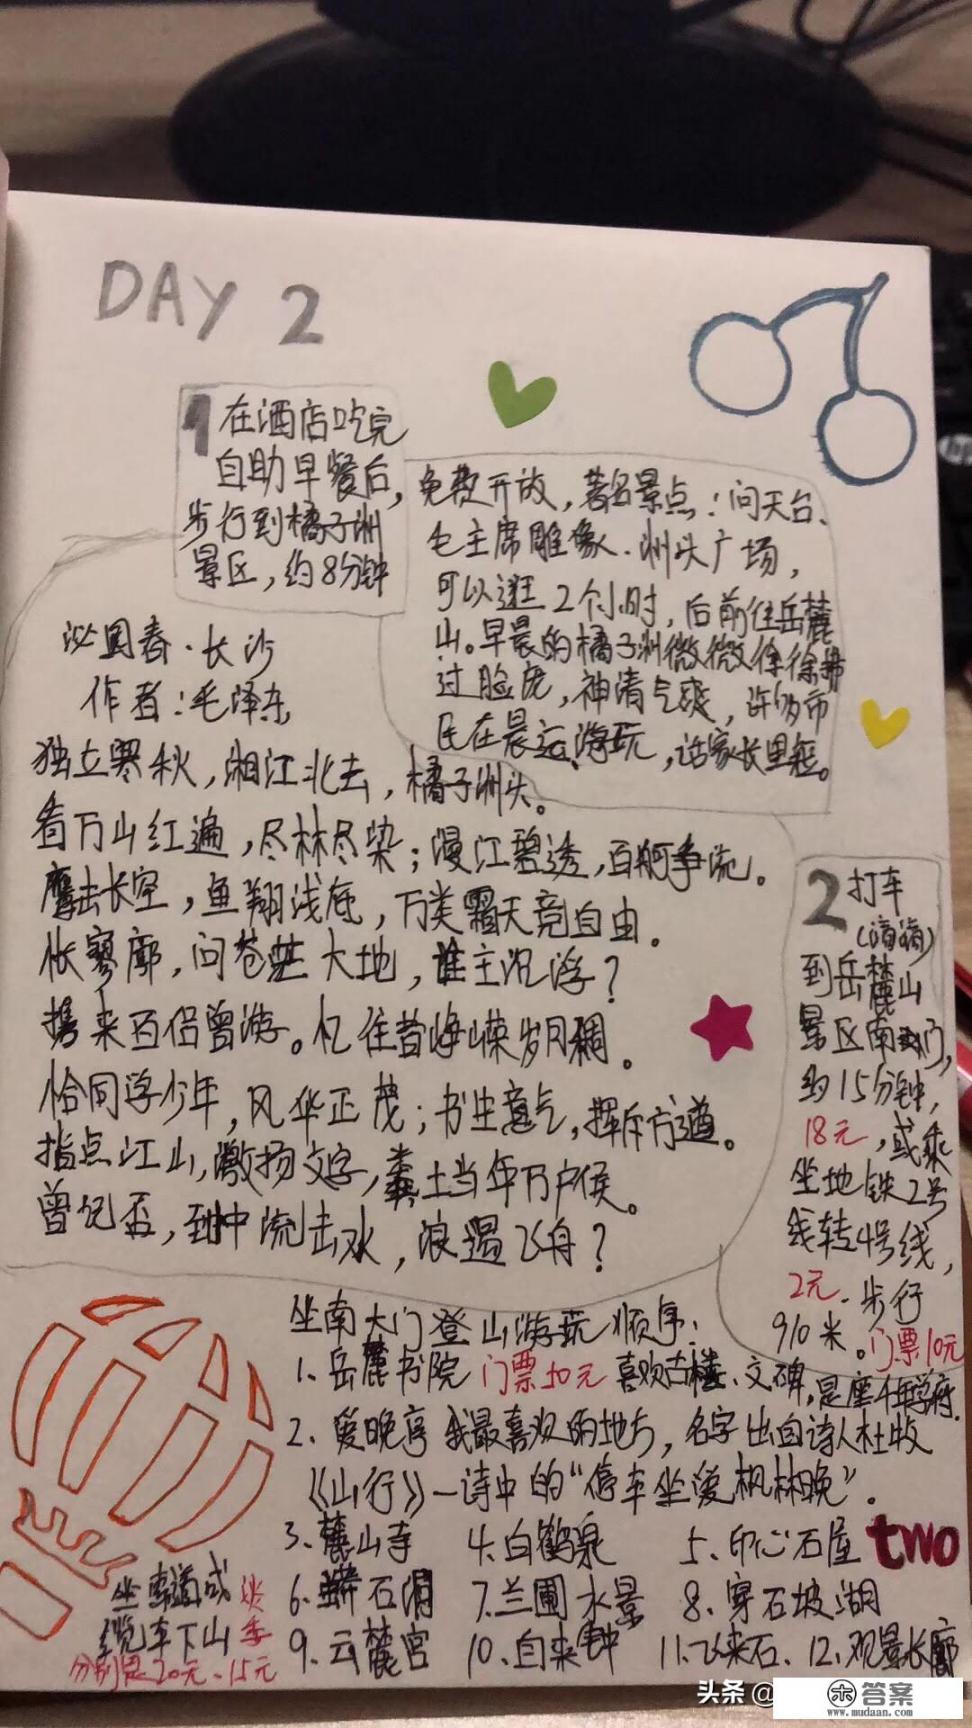 DAY 2
1 在酒店吃完
自助早餐后,
步行到橘子洲
景区,约8分钟
免费开放,著名景点:问天台、
毛主席雕像、洲头广场,
可以逛2个小时,后前往岳麓
山。早晨的橘子洲微微徐徐拂
过脸庞,神清气爽,许多市
民在晨运、游玩,话家长里短。
沁园春·长沙
作者:毛泽东
独立寒秋,湘江北去,橘子洲头。
看万山红遍,尽林尽染;漫江碧透,百舸争流。
鹰击长空,鱼翔浅底,万类霜天竞自由。
怅寥廓,问苍茫大地,谁主沉浮?
携来百侣曾游。忆往昔峥嵘岁月稠。
恰同学少年,风华正茂;书生意气,挥斥方遒。
指点江山,激扬文字,粪土当年万户侯。
曾记否,到中流击水,浪遏飞舟?
2 打车
(滴滴)
到岳麓山
景区南大门,
约15分钟,
18元,或乘
坐地铁2号
线转4号线,
2元、步行
910米。门票10元
坐南大门登山游玩顺序:
1、岳麓书院 门票50元 喜欢古楼、文碑,是座千年学府.
2、爱晚亭 我最喜欢的地方,名字出自诗人杜牧
《山行》一诗中的“停车坐爱枫林晚”。
3、麓山寺 4、白鹤泉 5、印心石屋 two
6、蟒石洞 7、兰圃水景 8、穿石坡湖
9、云麓宫 10、自来钟 11、飞来石、12、观景长廊
坐索道或
缆车下山
分别是20元、15元
头条 @
答案
www.mudaan.com